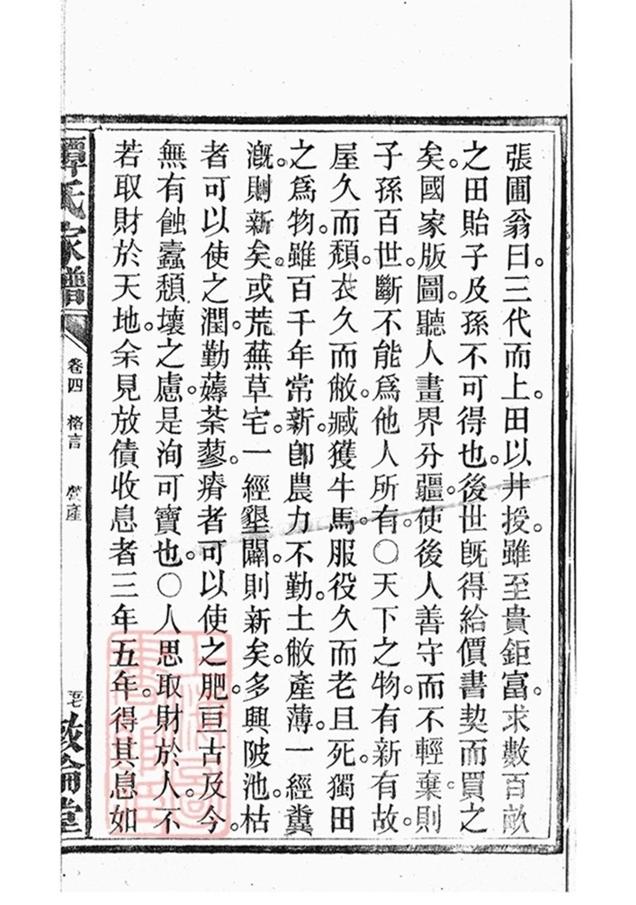 張圃翁曰。三代而上。田以井授。雖至貴鉅富。求數百畝
之田貽子及孫不可得也。後世旣得給價書契而買之
矣。國家版圖。聽人畫界分疆。使後人善守而不輕棄。則
子孫百世。斷不能爲他人所有。○天下之物。有新有故。
屋久而頹。衣久而敝。臧獲牛馬。服役久而老且死。獨田
之爲物。雖百千年常新。卽農力不勤。土敝產薄。一經糞
漑。則新矣。或荒蕪草宅。一經墾闢。則新矣。多興陂池。枯
者可以使之潤。勤薅荼蓼。瘠者可以使之肥。亘古及今。
無有蝕蠹頹壞之慮。是洵可寶也。○人思取財於人。不
若取財於天地。余見放債收息者。三年五年。得其息如
譚氏家譜
卷四 格言 營產
敦倫堂